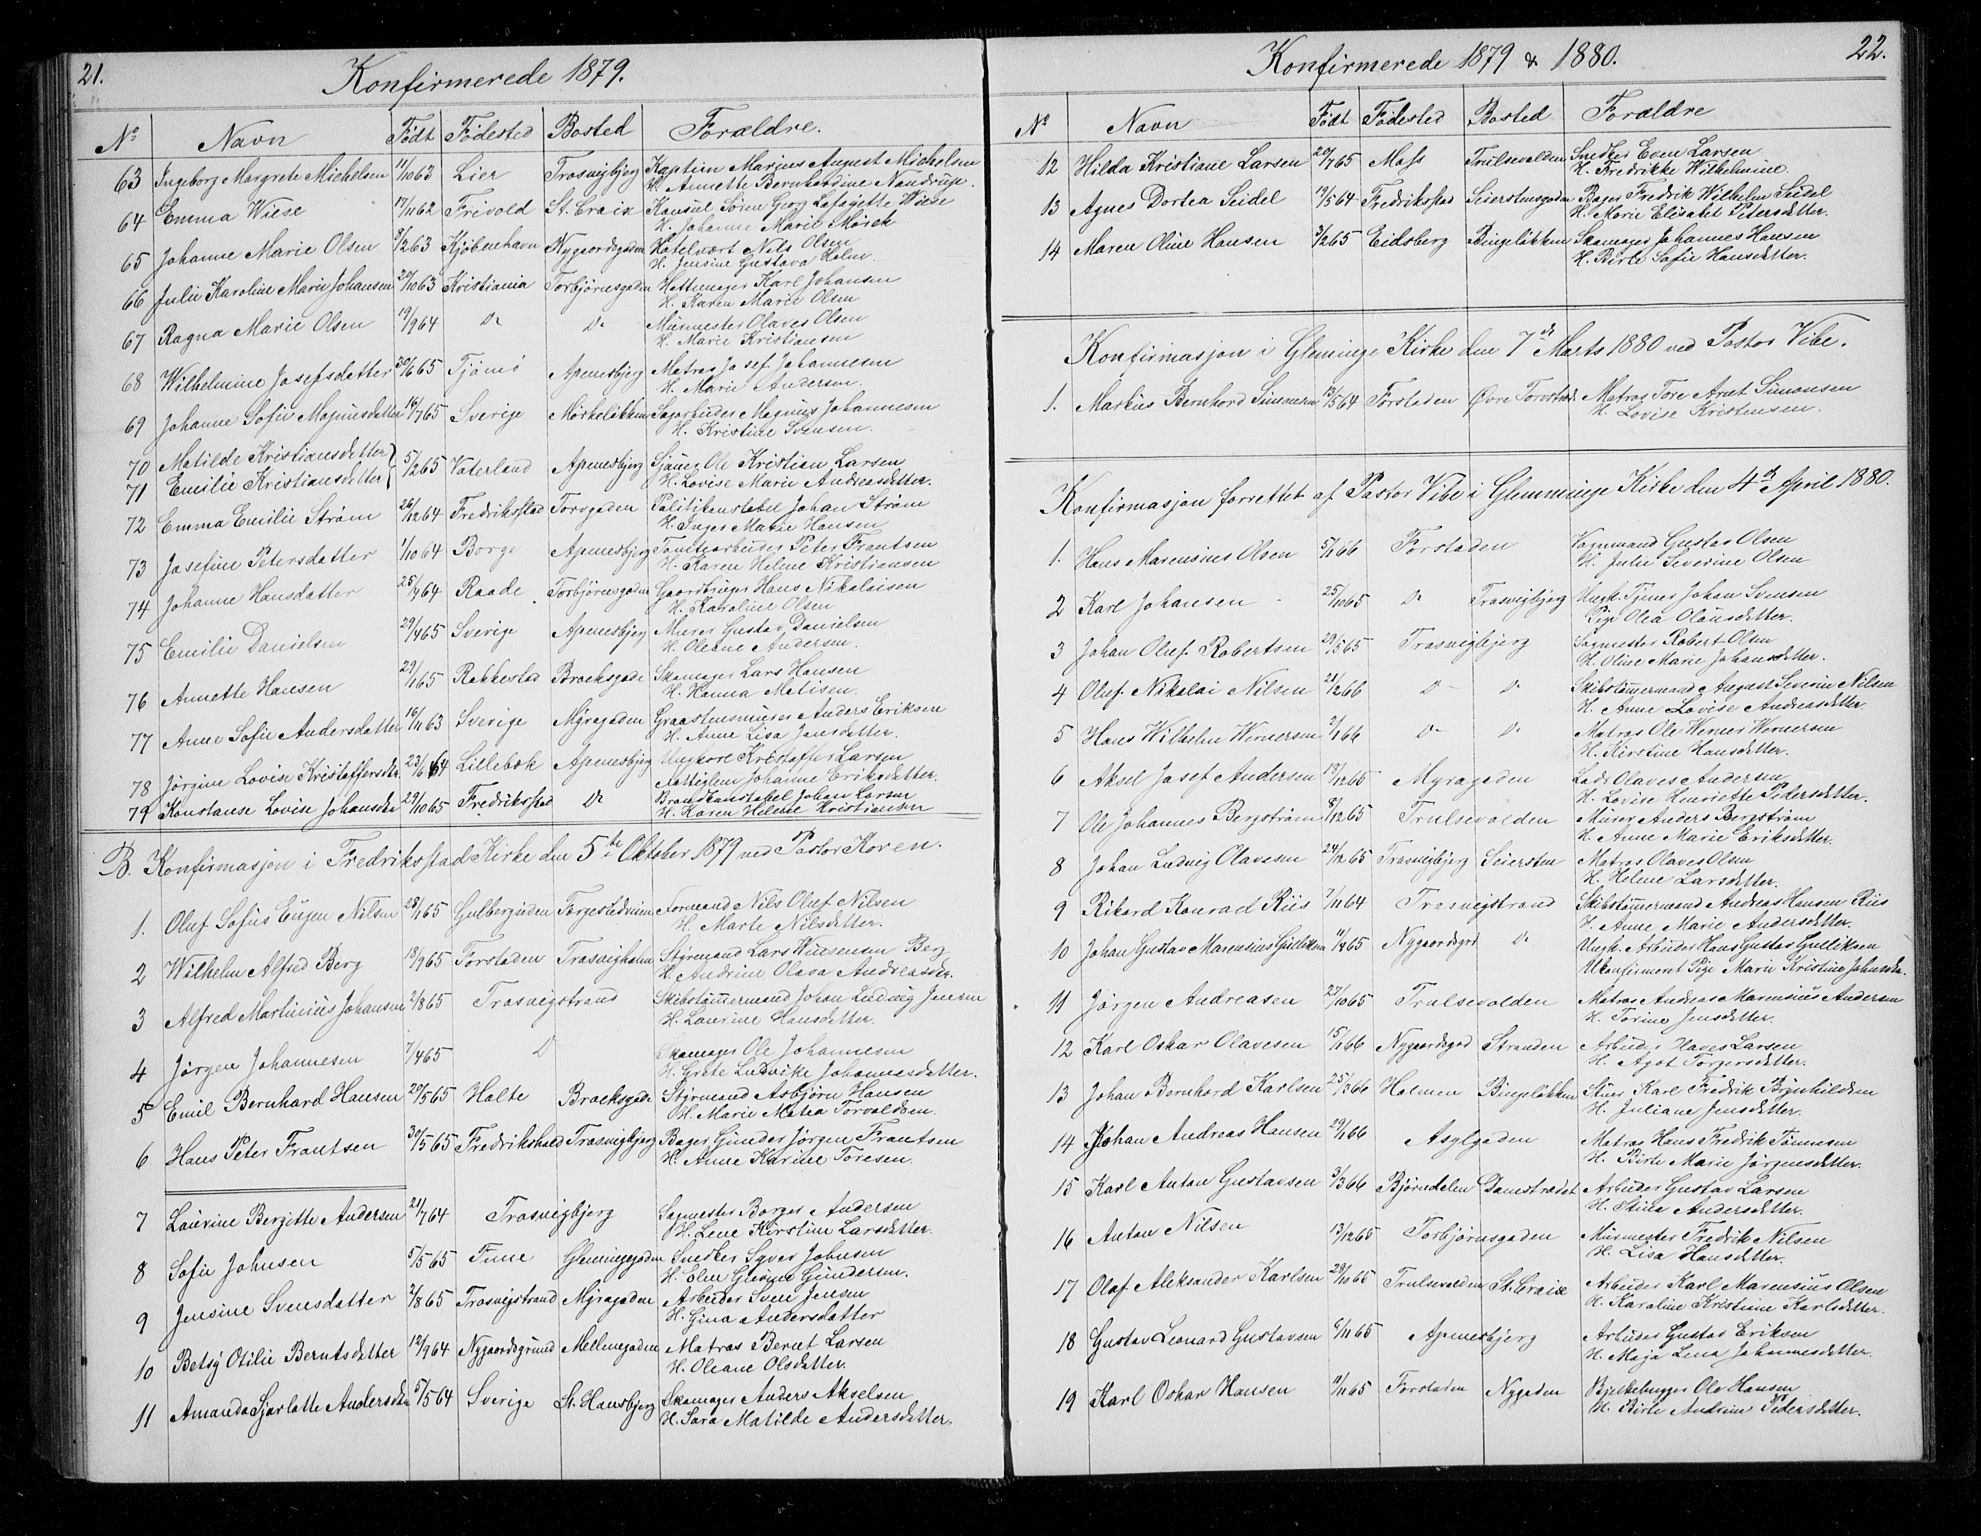 21.
Konfirmerede 1879.
No Navn Født Fødested Bosted Forældre.
63 Ingeborg Margrete Michelsen 11/10 63 Lier Trosvigbjerg Kaptein Marius August Michelsen
H. Annette Bernhardine Naudrup.
64 Emma Wiese 17/11 62 Frivold St. Croix Konsul Søren Georg Lafayette Wiese
H. Johanne Marie Mørch
65 Johanne Marie Olsen 9/2 63 Kjøbenhavn Nygaardsgaden Hotelvært Nils Olsen
H. Jensine Gustava Holm
66 Julie Karoline Marie Johansen 20/10 63 Kristiania Torbjørnsgaden Hattemager Karl Johansen
H. Karen Marie Olsen
67 Ragna Marie Olsen 19/9 64 Do Do Mürmester Olaves Olsen
H. Marie Kristiansen
68 Wilhelmine Josefsdatter 20/6 65 Tjømø Apenesbjerg Matros Josef Johannesen
H. Marie Andersen.
69 Johanne Sofie Magnusdatter 16/7 65 Sverige Mørkeløkken Sagarbeider Magnus Johannesen
H. Kristine Svensen.
70 Matilde Kristiansdatter
71 Emilie Kristiansdatter 5/12 65 Vaterland Apenesbjerg Sjauer Ole Kristian Larsen
H. Lovise Marie Andreasdatter.
72 Emma Emilie Strøm 26/12 64 Fredrikstad Torsgaden Politikonstabel Johan Strøm
H. Inger Marie Hansen
73 Josefine Petersdatter 1/10 64 Borge Apenesbjerg Tomtearbeider Peter Frantsen
H. Karen Helene Kristiansen
74 Johanne Hansdatter 25/4 64 Raade Torbjørnsgaden Gaardbruger Hans Nikolaisen
H. Karoline Olsen
75 Emilie Danielsen 29/4 65 Sverige Apenesbjerg Murer Gustav Danielsen
H. Oleane Andersen.
76 Annette Hansen 29/1 65 Rakkestad Brochsgade Skomager Lars Hansen
H. Hanna Matisen.
77 Anne Sofie Andersdatter 16/11 63 Sverige Myragaden Graastensmurer Anders Eriksen
H. Anne Lisa Jansdatter.
78 Jørgine Lovise Kristoffersdtr 23/6 64 Lillebok Apenesbjerg Ungkare Kristoffer Larsen
Johanne Eriksdatter.
79 Konstanse Lovise Johansdtr 29/10 65 Fredrikstad Do Brandkonstabel Johan Larsen
H. Karen Helene Kristiansen
B. Konfirmasjon i Fredrikstad Kirke den 5te Oktober 1879 ved Pastor Koren.
1. Oluf Sofus Eugen Nilsen 28/1 65 Gulbergsiden Formand Nils Oluf Nilsen
H. Marte Nilsdatter.
2 Wilhelm Alfred Berg 18/9 65 Forstaden Trosvigholm Styrmand Lars Berg
H. Andrine Olava Andreasdtr.
3 Alfred Martinius Johansen 2/8 65 Trosvigstrand Skibstømermand Johan Ludvig Jensen
H. Laurine Hansdatter.
4 Jørgen Johannesen 7/4 65 D Skomager Ole Johannesen
H. Grete Ludvike Johannesdatter.
5 Emil Bernhard Hansen 20/5 65 Holte Brochsgade Styrmand Asbjørn Hansen
H. Marie Matea Torvaldsen.
6 Hans Peter Frantsen 30/5 65 Fredrikshald Trosvigbjerg Bager Gunder Jørgen Frantsen
H. Anne Karine Toresen.
7 Laurine Bergitte Andersen 21/7 64 Trosvigbjerg Sagmester Borger Andersen
H. Lene Kirstine Larsdatter.
8 Sofie Johnsen 5/5 65 Tune Glemmegaden Snedker Syver Johnsen
H. Elen Gundersen.
9 Jensine Svensdatter 2/8 65 Trosvigstrand Myragaden Arbeider Sven Jensen
H. Gina Andersdatter
10 Betsy Otilie Berntsdatter 12/9 64 Nygaardsgrund Mellemgaden Matros Bernt Larsen
H. Oleane Olsdatter.
11 Amanda Sjarlotte Andersdtr 5/5 64 Sverige St. Hansbjerg Skomager Anders Akselsen
H. Sara Matilde Andersdatter.
Konfirmerede 1879 & 1880. 22.
No Navn Født Fødested Bosted Forældre
12 Hilda Kristiane Larsen 20/7 65 Moss Trulsevolden Snedker Even Larsen
H. Fredrikke Wilhelmine.
13 Agnes Dortea Seidel 19/5 64 Fredrikstad Seierstensgaden Bager Fredrik Wilhelm Seidel
H. Marie Elisabet Petersdatter.
14 Maren Oline Hansen 3/2 65 Eidsberg Bingeløkken Skomager Johannes Hansen
H. Birte Sofie Hansdatter.
Konfirmasjon i Gleminge Kirke den 7de Marts 1880 ved Pastor Vibe.
1. Markus Bernhard Simonsen 13/5 64 Forstaden Øvre Torvstræde Matros Tore Arnt Simonsen
H. Lovise Kristensen.
Konfirmasjon forrettet af Pastor Vibe i Glemminge Kirke den 4de April 1880.
1. Hans Marensius Olsen 5/1 66 Forstaden Vognmand Gustav Olsen
H. Julie Severine Olsen
2 Karl Johansen 25/10 65 Do Trosvigbjerg Ungk. Tjener Johan Svensen
Pige Olea Olausdatter.
3 Johan Oluf Robertsen 29/5 65 Trosvigbjerg Sagmester Robert Olsen
H. Oline Marie Johansdatter.
4 Oluf Nikolai Nilsen 21/2 66 D D Skibstømermand August Severin Nilsen
H. Anne Lovise Andreasdatter
5 Hans Wilhelm Wernersen 2/1 66 Do Do Matros Ole Werner Wernersen
H. Kirstine Hansdatter.
6 Aksel Josef Andersen 18/12 65 Myragaden Lods Olaves Andersen
H. Lovise Henriette Pedersdatter.
7 Ole Johannes Bergstrøm 8/12 65 Trulsevolden Murer Anders Bergstrøm
H. Anne Marie Eriksdatter.
8 Johan Ludvig Olavesen 24/12 65 Trosvigbjerg Seiersten Matros Olaves Olsen
H. Helene Larsdatter.
9 Rikard Konrad Riis 7/11 64 Trosvigstrand Skibstømermand Andreas Hansen Riis
H. Anne Marie Andersdatter.
10 Johan Gustav Marensius Gulliksen 11/4 65 Nygaardsgrd Do Ungk. Arbeider Hans Gustav Gulliksen
Ukonfirmeret Pige Marie Kristine Johnsdtr.
11 Jørgen Andreasen 27/10 65 Trulsevolden Matros Andreas Marensius Andersen
H. Torine Jensdatter.
12 Karl Oskar Olavesen 15/1 66 Nygaardsgrd Stranden Arbeider Olaves Larsen
H. Agot Torgersdatter.
13 Johan Bernhard Karlsen 25/3 66 Holmen Bingeløkken Stuer Karl Fredrik Brynhildsen
H. Juliane Jensdatter.
14 Johan Andreas Hansen 29/1 66 Asylgaden Matros Hans Fredrik Tønnesen
H. Birte Marie Jørgensdatter.
15 Karl Anton Gustavsen 3/3 66 Bjørndalen Damstrædet Arbeider Gustav Larsen
H. Stina Andersdatter.
16 Anton Nilsen 13/12 65 Torbjørnsgaden Mürmester Fredrik Nilsen
H. Lisa Hansdatter.
17 Olaf Aleksander Karlsen 28/10 65 Trulsevolden St. Croix Arbeider Karl Marensius Olsen
H. Karoline Kristine Karlsdatter.
18 Gustav Leonard Gustavsen 6/11 65 Apenesbjerg Arbeider Gustav Eriksen
H. Maja Lena Johannesdatter.
19 Karl Oskar Hansen 11/11 65 Forstaden Nygaden Bjelkehugger Ole Hansen
H. Birte Andrine Pedersdatter.